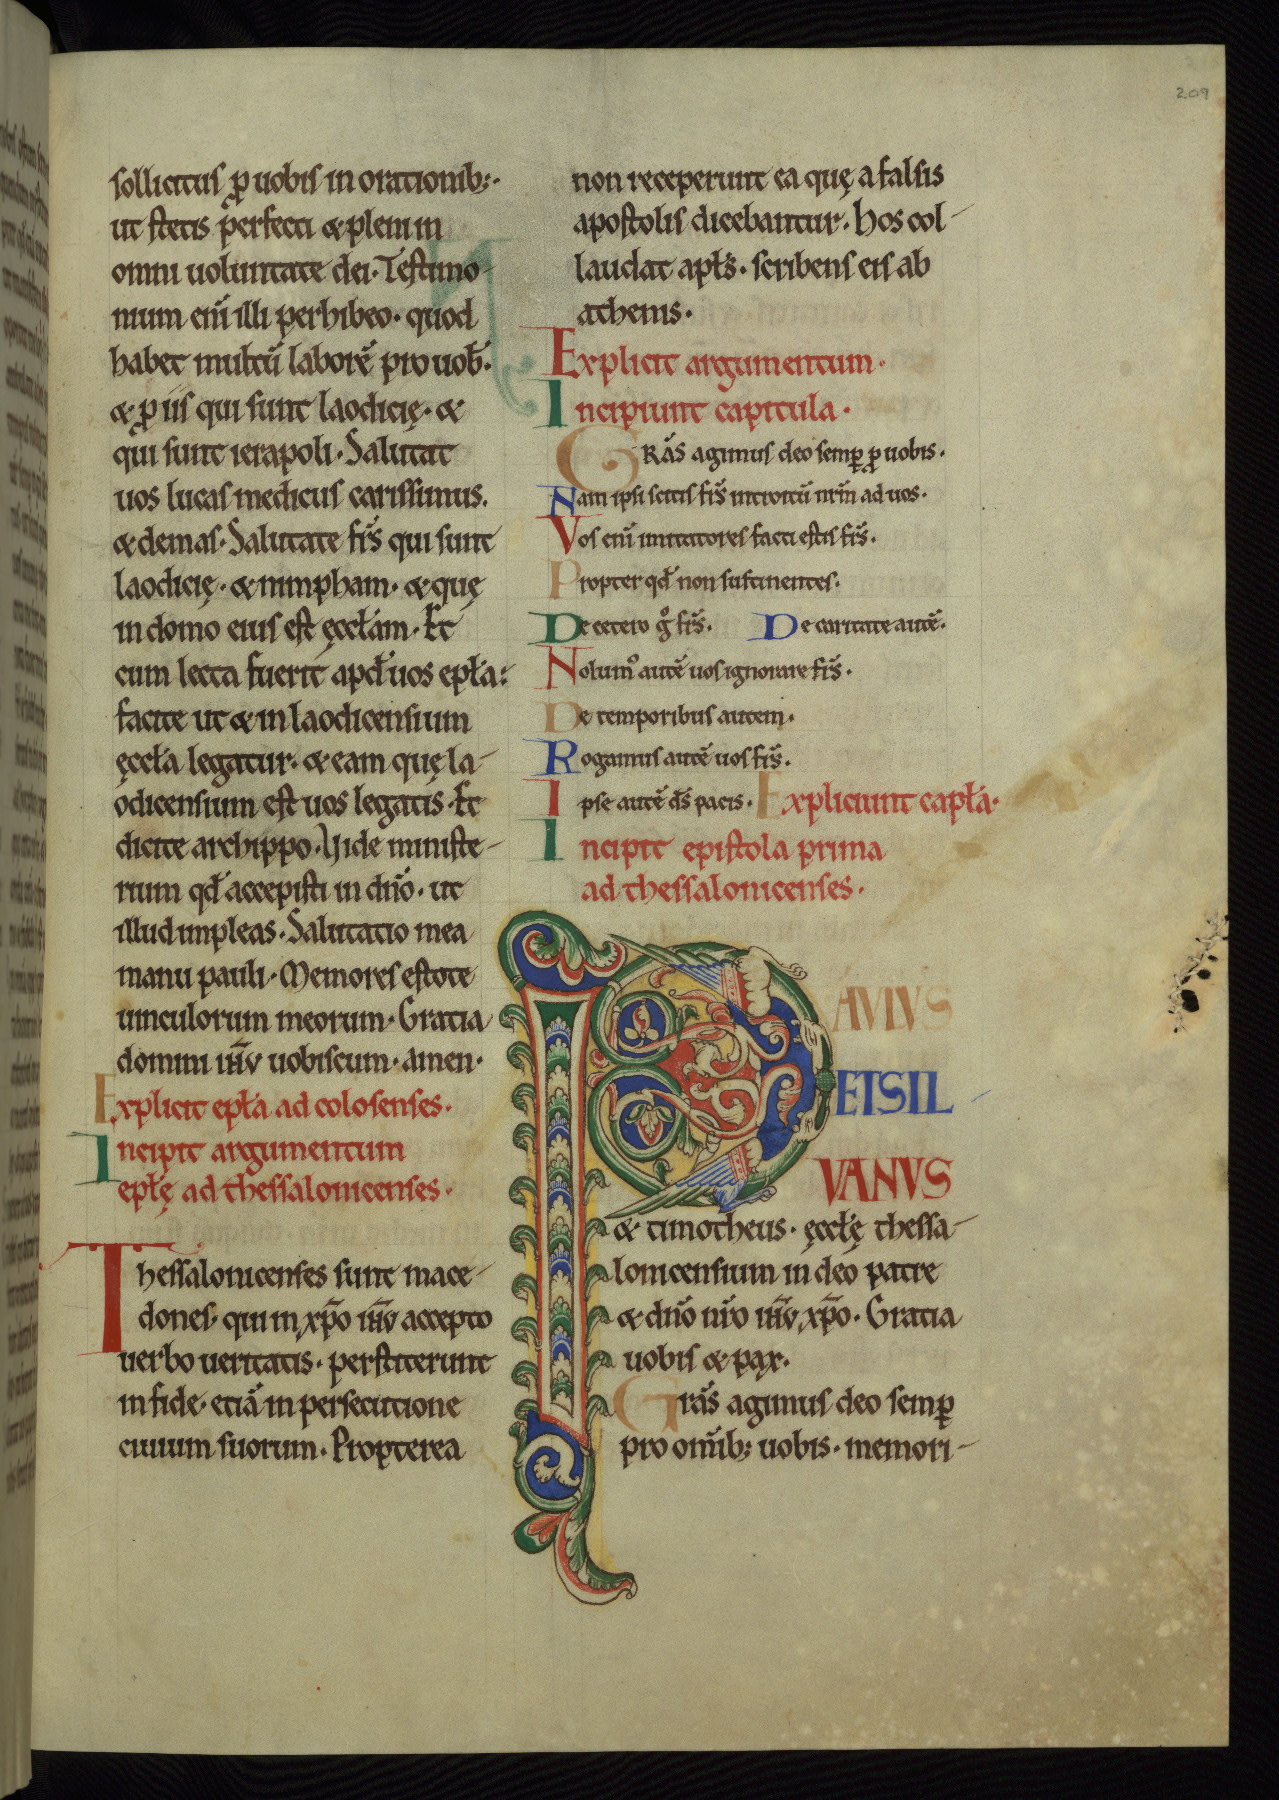 209
sollicitus ꝓ uobis in orationib;·
ut stetis perfecti & pleni in
omni uoluntate dei· Testimo-
nium eni̅ illi perhibeo· quod
habet multu̅ labore̅ pro uob̅·
& ꝓ iis qui sunt laodicię· &
qui sunt ierapoli· Salutat
uos lucas medicus carissimus.
& demas· Salutate fr̅s qui sunt
laodicię· & nimpham· & quę
in domo eius est ęccl̅am· Et
cum lecta fuerit apd̅ uos epl̅a:
facite ut & in laodicensium
ęccl̅a legatur· & eam quę la-
odicensium est uos legatis· Et
dicite archippo· Vide ministe-
rium qd̅ accepisti in dn̅o· ut
illud impleas· Salutatio mea
manu pauli· Memores estote
uinculorum meorum· Gratia
domini ih̅v uobiscum· amen·
Explicit epl̅a ad colosenses·
Incipit argumentum
epl̅ę ad thessalonicenses·
Thessalonicenses sunt mace-
dones· qui in xp̅o ih̅v accepto
uerbo ueritatis· perstiterunt
in fide· etia̅ in persecutione
ciuium suorum· Propterea
non receperunt ea quę a falsis
apostolis dicebantur· Hos col-
laudat apl̅s· scribens eis ab
athenis·
Explicit argumentum·
Incipiunt capitula·
GRA̅S agimus deo semꝑ ꝓ uobis·
Nam ipsi scitis fr̅s introitu̅ nr̅m ad uos·
Vos eni̅ imitatores facti estis fr̅s·
Propter qd̅ non sustinentes·
De cetero gͦ fr̅s· De caritate aute̅·
Nolumꝰ aute̅ uos ignorare fr̅s·
De temporibus autem·
Rogamus aute̅ uos fr̅s·
Ipse aute̅ d̅s pacis· Expliciunt capl̅a·
Incipit epistola prima
ad thessalonicenses·
PAVLVS
ETSIL
VANVS
& timotheus· ęccl̅ę thessa-
lonicensium in deo patre
& dn̅o nr̅o ih̅v xp̅o· Gratia
uobis & pax·
Gra̅s agimus deo semꝑ
pro omi̅b; uobis· memori-